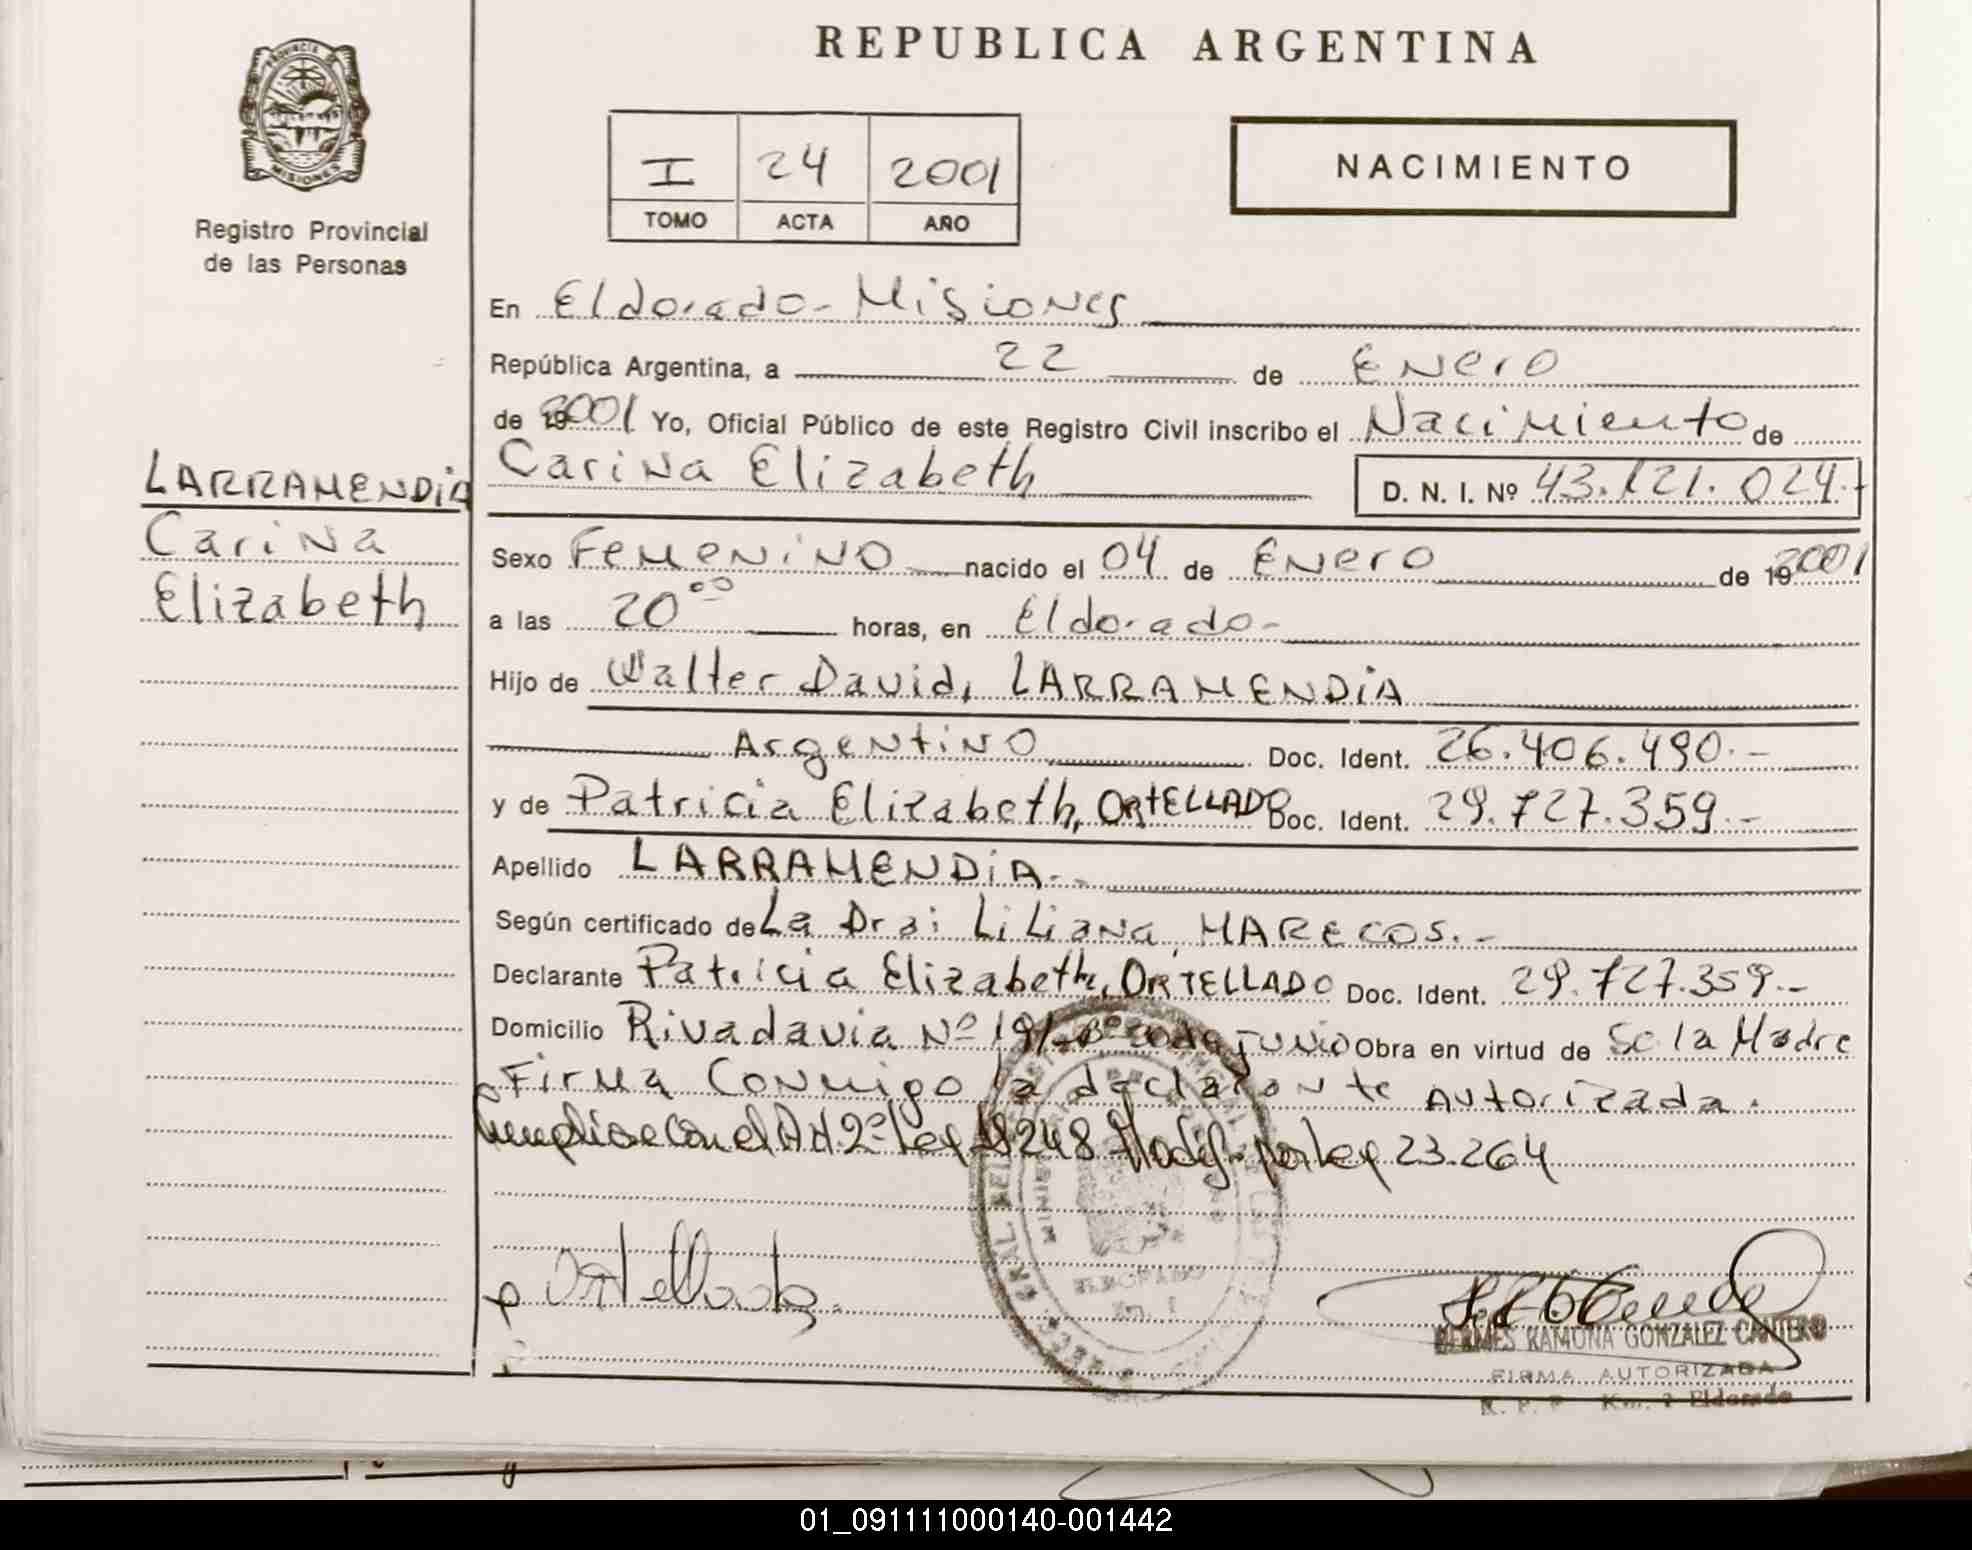 REPUBLICA ARGENTINA
PROVINCIA DE
MISIONES
Registro Provincial
de las Personas
I 24 2001
TOMO ACTA AÑO
NACIMIENTO
En Eldorado - Misiones
República Argentina, a 22 de Enero
de 2001 Yo, Oficial Público de este Registro Civil inscribo el Nacimiento de
Carina Elizabeth D. N. I. Nº 43.121.024.-
LARRAMENDIA
Carina
Elizabeth
Sexo Femenino nacido el 04 de Enero de 2001
a las 20 00 horas, en Eldorado-
Hijo de Walter David, LARRAMENDIA
Argentino Doc. Ident. 26.406.490.-
y de Patricia Elizabeth, ORTELLADO Doc. Ident. 29.727.359.-
Apellido LARRAMENDIA.-
Según certificado de La Dra: Liliana MARECOS.-
Declarante Patricia Elizabeth, ORTELLADO Doc. Ident. 29.727.359.-
Domicilio Rivadavia Nº 191-Bº 20 de JUNIO Obra en virtud de Se la Madre
Firma Conmigo la declarante Autorizada.
Cumplise con el Art 2º Ley 18248 Modif. por Ley 23.264
Ortellado
ELDORADO
HERMES RAMONA GONZALEZ CANTERO
FIRMA AUTORIZADA
R. P. P. Km. 2 Eldorado
01_091111000140-001442